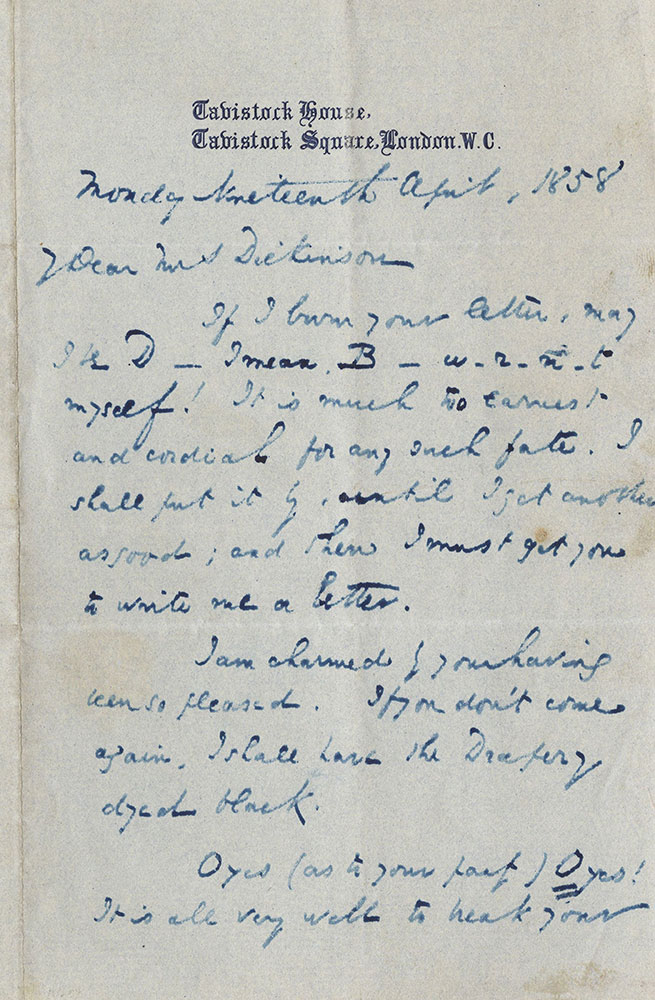 Tavistock House,
Tavistock Square, London. W.C.
Monday Nineteenth April, 1858
My Dear Mrs Dickinson
If I burn your letter, may
I be D — I mean, B — u-r-n-t
myself! It is much too earnest
and cordial for any such fate. I
shall put it by, until I get another
as good; and then I must get you
to write me a better.
I am charmed by your having
been so pleased. If you don't come
again, I shall have the Drapery
dyed black.
O yes (as to your past) O yes!
It is all very well to break your